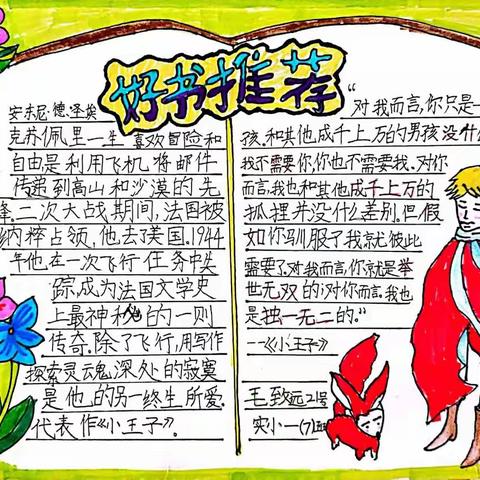 好书推荐
安东尼·德·圣埃
克苏佩里一生喜欢冒险和
自由是利用飞机将邮件
传递到高山和沙漠的先
降.二次大战期间,法国被
纳粹占领,他去了美国.1944
年他在一次飞行任务中失
踪,成为法国文学史
上最神秘的一则
传奇.除了飞行,用写作
探索灵魂深处的寂寞
是他的另一终生所爱.
代表作《小王子》.
“对我而言,你只是一
孩.和其他成千上万的男孩没什
我不需要你,你也不需要我.对你
而言,我也和其他成千上万的
狐狸并没什么差别.但假
如你驯服了我就彼此
需要了.对我而言,你就是举
世无双的;对你而言,我也
是独一无二的.”
--《小王子》
毛致远21号
实小一(7)班